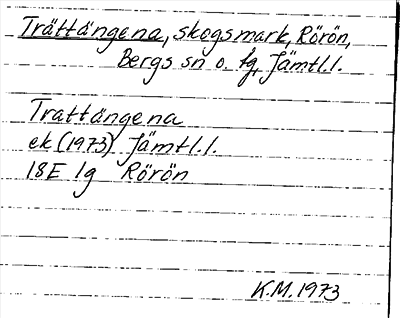 Trättängena, skogsmark, Rörön,
Bergs sn o. tg, Jämtl.l.
Trattängena
ek (1973) Jämtl.l.
18E 1g Rörön
K.M. 1973